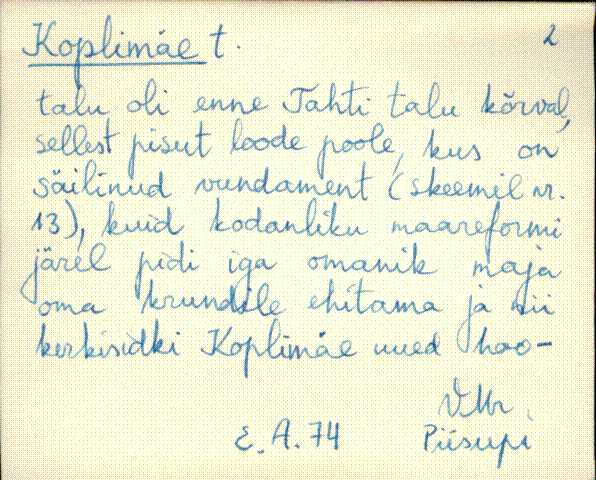 Koplimäe t. 2
talu oli enne Tahti talu kõrval,
sellest pisut loode poole, kus on
säilinud vundament (skeemil nr.
13), kuid kodanliku maareformi
järel pidi iga omanik maja
oma krundile ehitama ja nii
kerkisidki Koplimäe uued hoo-
V.Mr.
E.A.74 Piisupi